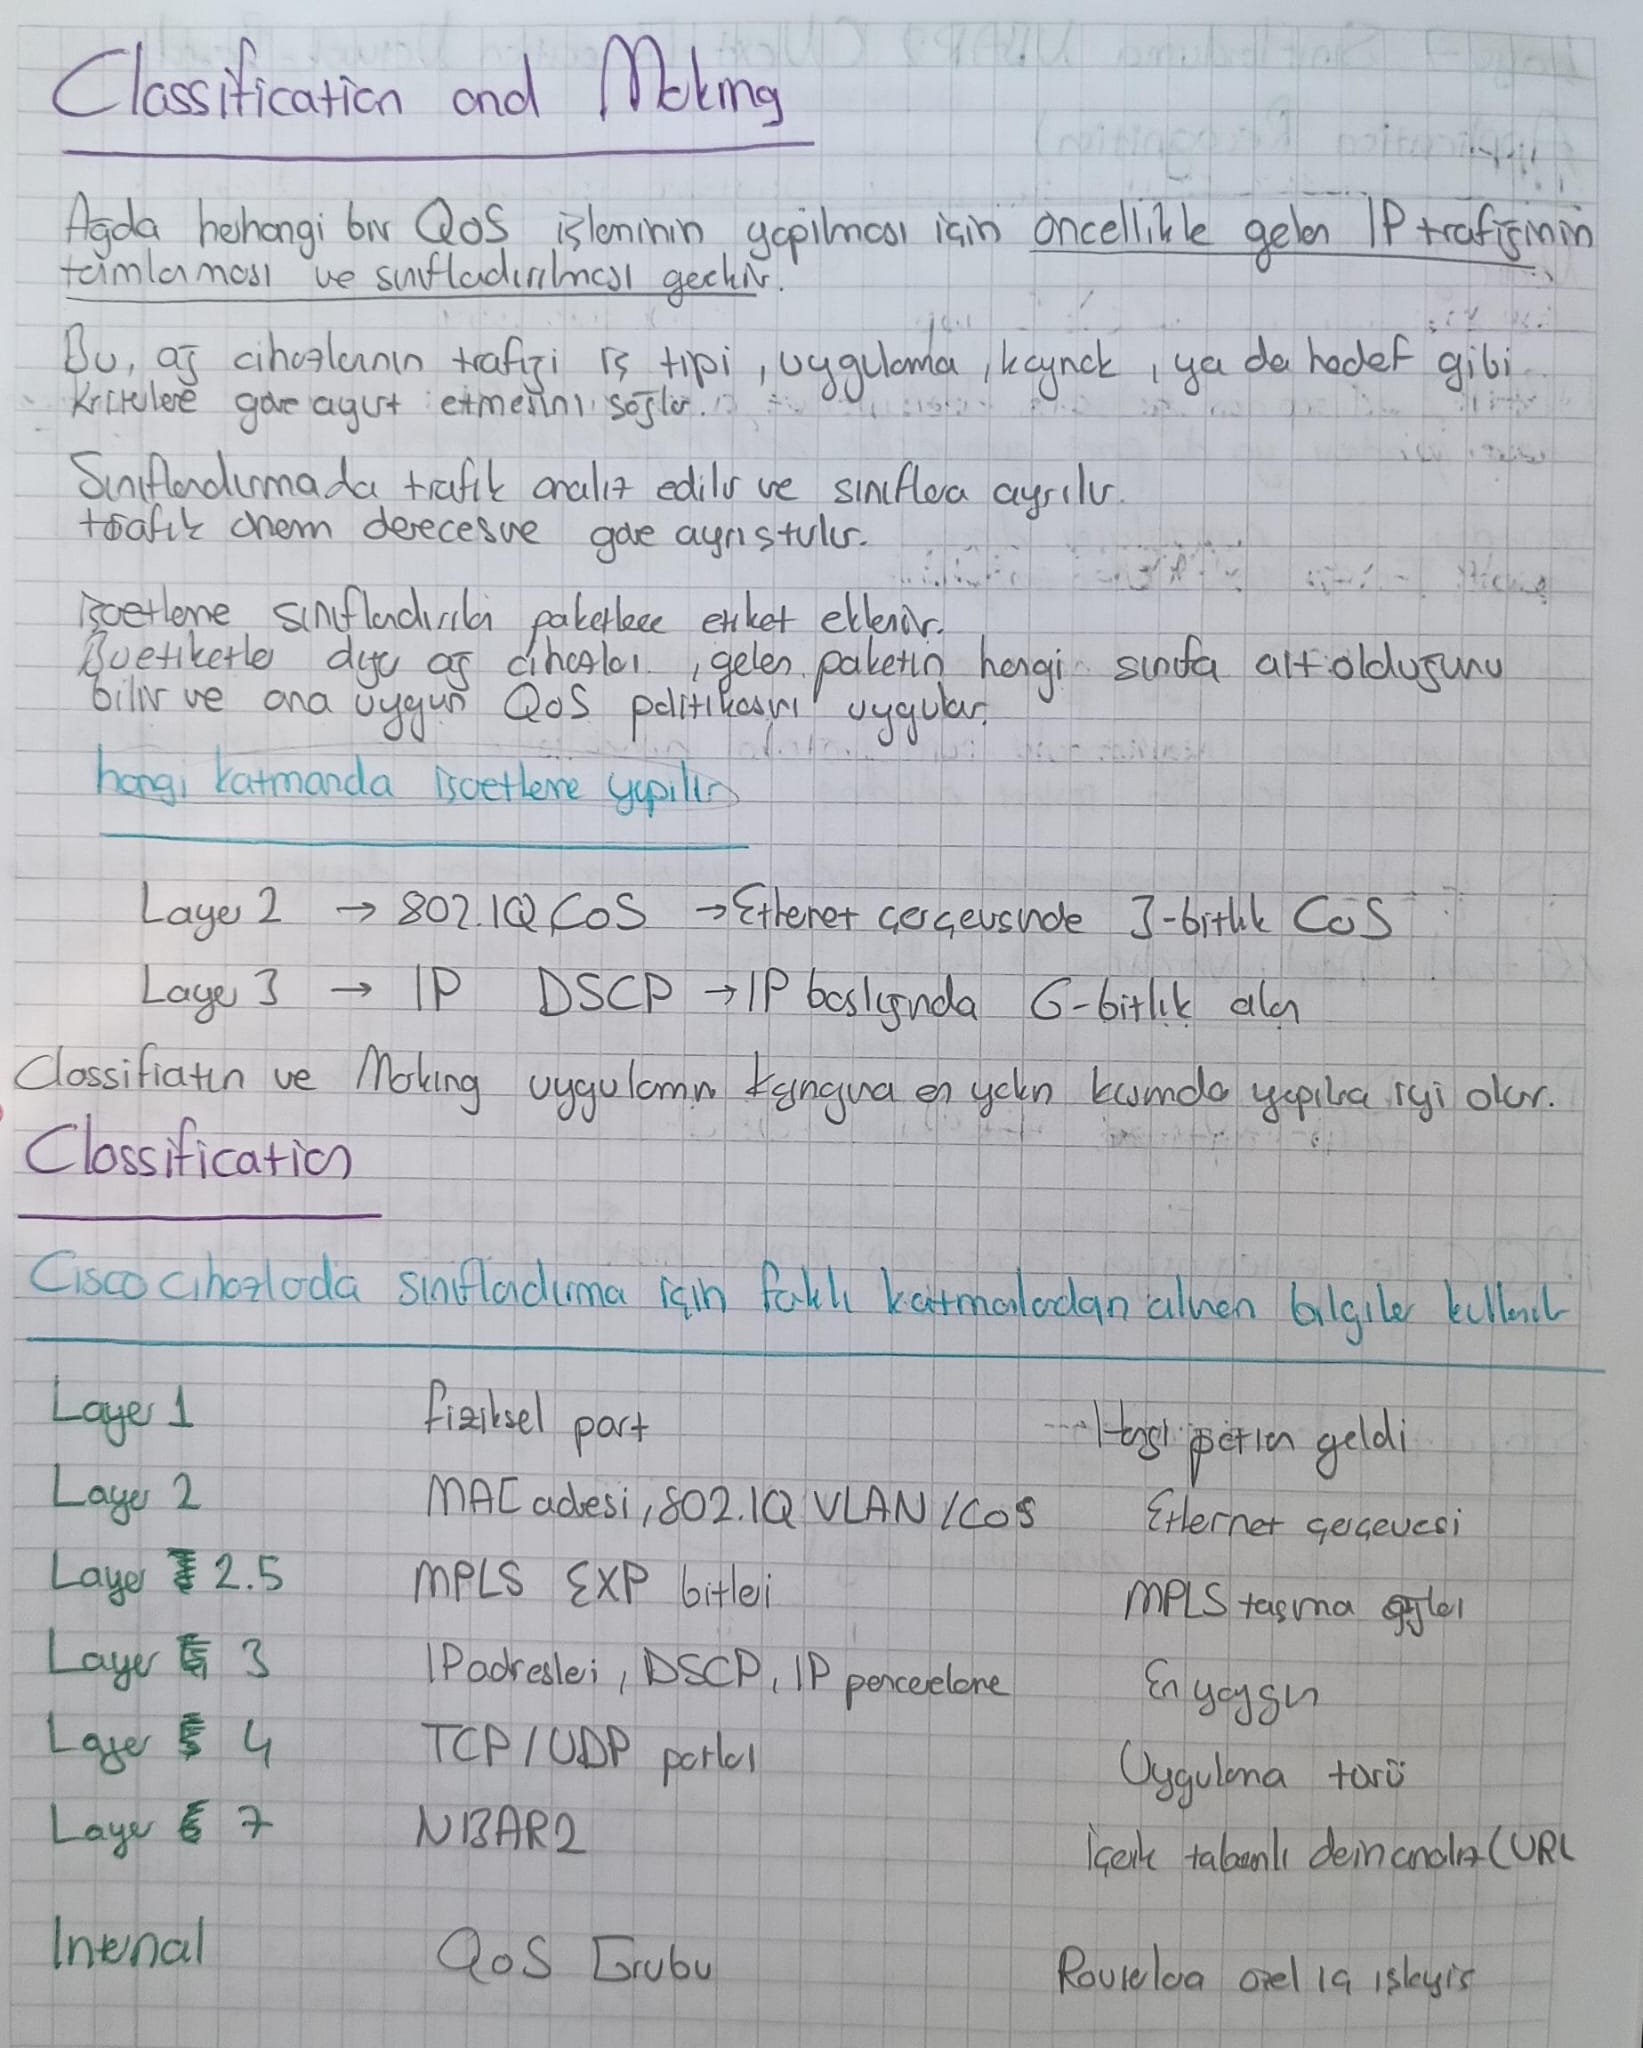 Classification and Making
Ağda herhangi bir QoS işleminin yapılması için öncellikle gelen IP trafiğinin
tanımlaması ve sınıfladırılması gerekir.
Bu, ağ cihazlarının trafiği iş tipi, uygulama, kaynak, ya da hedef gibi
kriterlere göre ayırt etmesini sağlar.
Sınıflandırmada trafik analiz edilir ve sınıflara ayrılır.
trafik önem derecesine göre ayrıştırılır.
işaetleme sınıfladırılan paketlere etiket eklenir.
Bu etiketle diğer ağ cihazları, gelen paketin hangi sınıfa ait olduğunu
bilir ve ona uygun QoS politikasını uygular.
hangi katmanda işaetleme yapılır
Layer 2 → 802.1Q CoS → Ethernet çerçevesinde 3-bitlik CoS
Layer 3 → IP DSCP → IP başlığında 6-bitlik alan
Classification ve Marking uygulamanın kaynağına en yakın kısımda yapılırsa iyi olur.
Classification
Cisco cihazlarda sınıfladırma için farklı katmanlardan alınan bilgiler kullanılır
Layer 1 fiziksel port Hangi porttan geldi
Layer 2 MAC adresi, 802.1Q VLAN/CoS Ethernet çerçevesi
Layer 2.5 MPLS EXP bitleri MPLS taşıma ağları
Layer 3 IP adresleri, DSCP, IP En yaygın
Layer 4 TCP/UDP portları Uygulama türü
Layer 7 NBAR2 İçerik tabanlı derin analiz (URL
Internal QoS Grubu Routerlara özel iç işleyiş